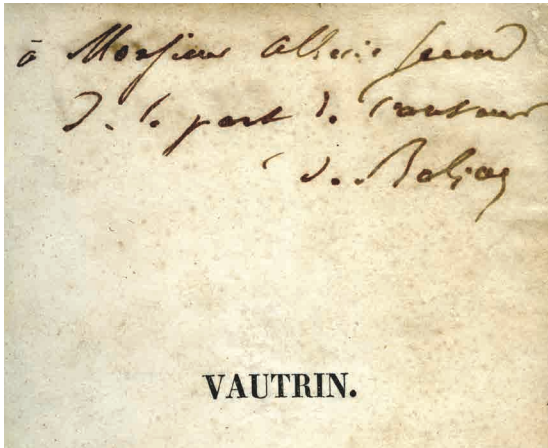 à Monsieur Albéric Second
de la part de l'auteur
de Balzac
VAUTRIN.